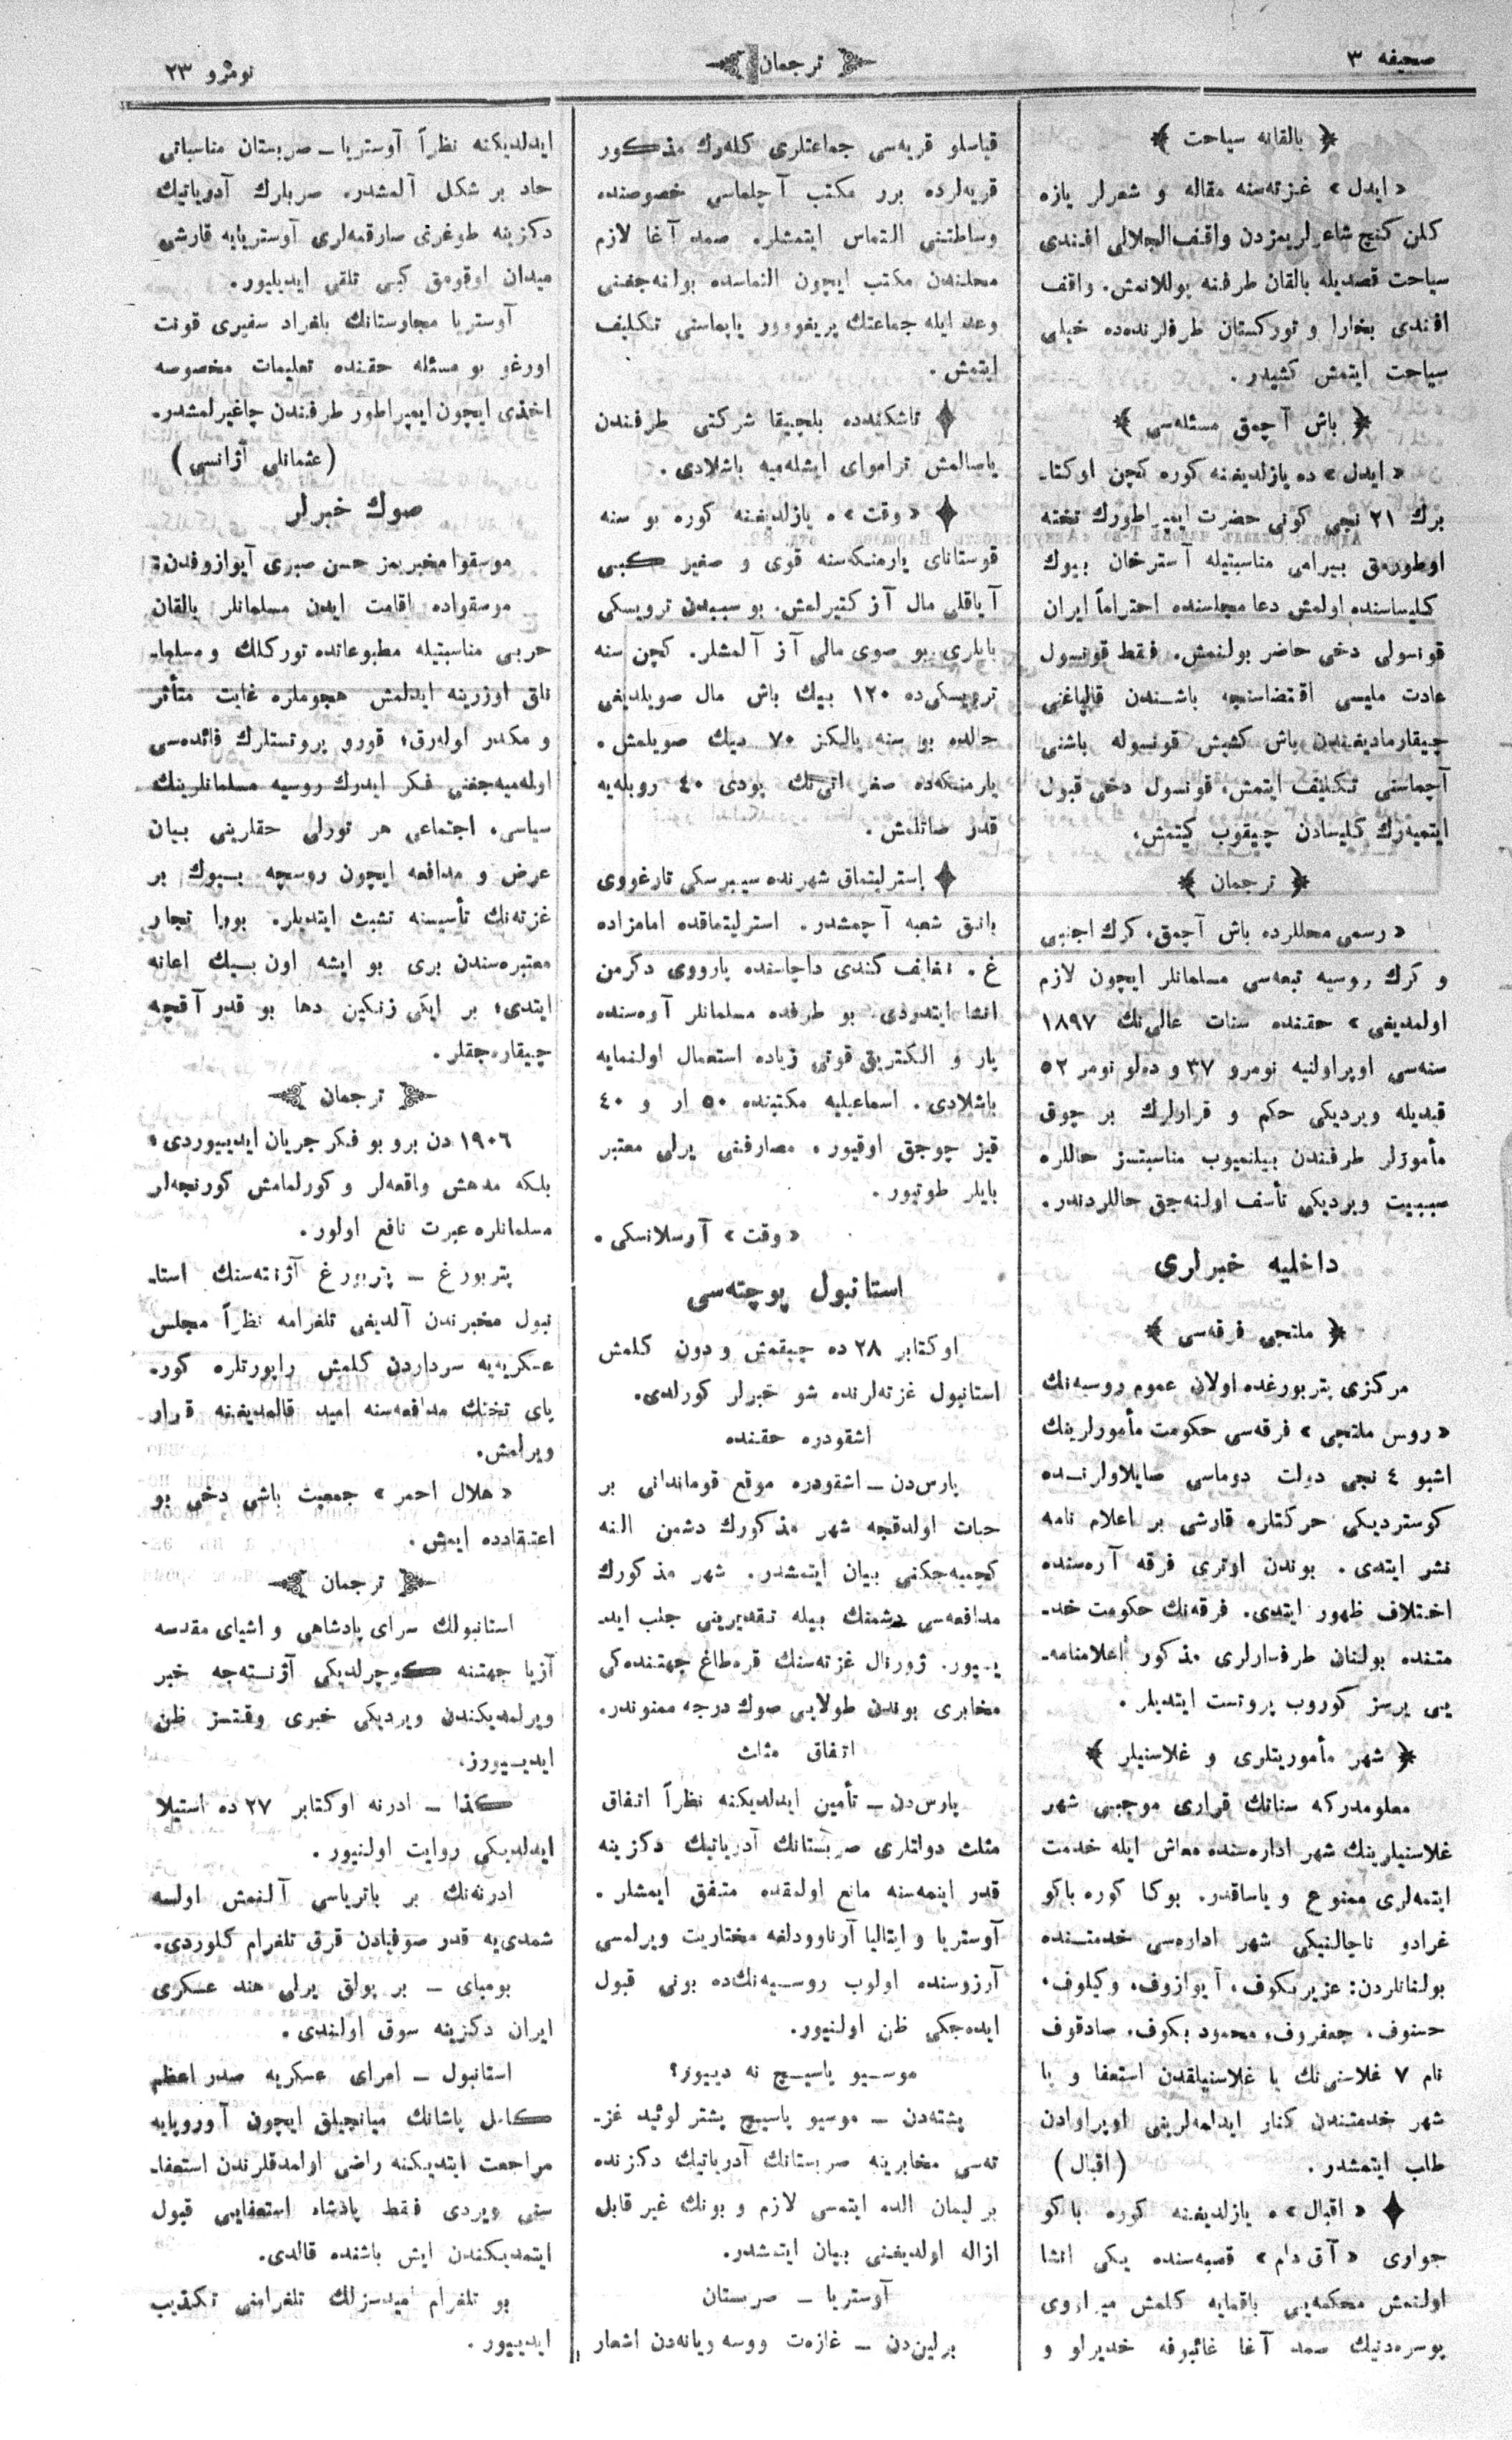 صحیفه ٣
ترجمان
نومرو ٢٣
﴿ بالقانه سیاحت ﴾
« ایدل » غزته‌سنه مقاله و شعرلر یازه
کلن کنج شاعرلریمزدن واقف‌الجلالی افندی
سیاحت قصدیله بالقان طرفنه یوللانمش. واقف
افندی بخارا و تورکستان طرفلرنده‌ده خیلی
سیاحت ایتمش کشیدر.
﴿ باش آچمق مسئله‌سی ﴾
« ایدل » ده یازلدیغنه کوره کچن اوکتا‌ـ
برك ٢١ نجی کونی حضرت ایمپراطورك تخته
اوطورمق بیرامی مناسبتیله آسترخان بیوك
کلیساسنده اولمش دعا مجلسنده احتراماً ایران
قونسولی دخی حاضر بولنمش. فقط قونسول
عادت ملیسی اقتضاسنجه باشندن قالپاغنی
چیقارمادیغندن باش کشیش قونسوله باشنی
آچماسنی تکلیف ایتمش، قونسول دخی قبول
ایتمیه‌رك کلیسادن چیقوب کیتمش.
﴿ ترجمان ﴾
« رسمی محللرده باش آچمق، کرك اجنبی
و کرك روسیه تبعه‌سی مسلمانلر ایچون لازم
اولمدیغی » حقنده سنات عالی‌نك ١٨٩٧
سنه‌سی اوپراولنیه نومرو ٣٧ و ده‌لو نومر ٥٢
قیدیله ویردیکی حکم و قرارلرك بر چوق
مأمورلر طرفندن بیلنمیوب مناسبتسز حاللره
سببیت ویردیکی تأسف اولنه‌جق حاللردندر.
داخلیه خبرلری
﴿ ملتجی فرقه‌سی ﴾
مرکزی پتربورغده اولان عموم روسیه‌نك
« روس ملتجی » فرقه‌سی حکومت مأمورلرینك
اشبو ٤ نجی دولت دوماسی صایلاولرنده
کوستردیکی حرکتلره قارشی بر اعلام نامه
نشر ایتدی. بوندن اوتری فرقه آره‌سنده
اختلاف ظهور ایتدی. فرقه‌نك حکومت خد‌ـ
متنده بولنان طرفدارلری مذکور اعلامنامه‌ـ
یی یرسز کوروب پروتست ایتدیلر.
﴿ شهر مأموریتلری و غلاسنیلر ﴾
معلومدرکه سناتك قراری موجبی شهر
غلاسنیلرینك شهر اداره‌سنده معاش ایله خدمت
ایتمه‌لری ممنوع و یاساقدر. بوکا کوره باکو
غرادو ناچالنیکی شهر اداره‌سی خدمتنده
بولنانلردن: عزیزبکوف، آیوازوف، وکیلوف،
حسنوف، جعفروف، محمود بکوف، صادقوف
نام ٧ غلاسنی‌نك یا غلاسنیلقدن استعفا و یا
شهر خدمتندن کنار ایدلمه‌لرینی اوپراوادن
طلب ایتمشدر. (اقبال)
« اقبال »ه یازلدیغنه کوره باکو
جواری « آق دام » قصبه‌سنده یکی انشا
اولنمش محکمه‌یی باقمایه کلمش میراروی
پوسره‌دنیك صمد آغا غائبوفه خدیرلو و
قیاسلو قریه‌سی جماعتلری کله‌رك مذکور
قریه‌لرده برر مکتب آچلماسی خصوصنده
وساطتنی التماس ایتمشلر. صمد آغا لازم
محلندن مکتب ایچون التماسده بولنه‌جغنی
وعد ایله جماعتك پریغوور یاپماسنی تکلیف
ایتمش.
تاشکندده بلچیقا شرکتی طرفندن
یاصالمش تراموای ایشله‌میه باشلادی.
« وقت »ه یازلدیغنه کوره بو سنه
قوستانای یارمنکه‌سنه قوی و صغیر کبی
آیاقلی مال آز کتیرلمش. بو سببدن ترویسکی
بایلری بو صوی مالی آز آلمشلر. کچن سنه
ترویسکی‌ده ١٢٠ بیك باش مال صویلدیغی
حالده بو سنه یالکز ٧٠ بیك صویلمش.
یارمنکه‌ده صغر اتی‌نك پودی ٤٠ روبله‌یه
قدر صاتلمش.
إسترلیتماق شهرنده سیبرسکی تارغووی
بانق شعبه آچمشدر. استرلیتماقده امامزاده
غ. کندی داچاسنده پارووی دکرمن
انشا ایتدردی. بو طرفده مسلمانلر آره‌سنده
پار و الکتریق قوتی زیاده استعمال اولنمایه
باشلادی. اسماعیلیه مکتبنده ٥٠ ار و ٤٠
قیز چوجق اوقیور. مصارفنی یرلی معتبر
بایلر طوتیور.
« وقت » آرسلانسکی.
استانبول پوچته‌سی
اوکتابر ٢٨ ده چیقمش و دون کلمش
استانبول غزته‌لرنده شو خبرلر کورلدی.
اشقودره حقنده
پارس‌دن — اشقودره موقع قوماندانی بر
حیات اولدقچه شهر مذکورك دشمن النه
کچمیه‌جکنی بیان ایتمشدر. شهر مذکورك
مدافعه‌سی دشمنك بیله تقدیرینی جلب اید‌ـ
یپور. ژورنال غزته‌سنك قره‌طاغ جهتنده‌کی
مخابری بوندن طولایی صوك درجه ممنوندر.
اتفاق مثلث
پارس‌دن — تأمین ایدلدیکنه نظراً اتفاق
مثلث دولتلری صربستانك آدریاتیك دکزینه
قدر اینمه‌سنه مانع اولمقده متفق ایمشلر.
آوستریا و ایتالیا آرناوودلغه مختاریت ویرلمسی
آرزوسنده اولوب روسیه‌نك‌ده بونی قبول
ایده‌جکی ظن اولنیور.
موسیو پاسیچ نه دییور؟
پشته‌دن — موسیو پاسیچ پشتر لوئید غز‌ـ
ته‌سی مخابرینه صربستانك آدریاتیك دکزنده
بر لیمان الده ایتمسی لازم و بونك غیر قابل
ازاله اولدیغنی بیان ایتمشدر.
آوستریا — صربستان
برلین‌دن — غازه‌ت ووسه ویانه‌دن اشعار
ایدلدیکنه نظراً آوستریا — صربستان مناسباتی
حاد بر شکل آلمشدر. صربلرك آدریاتیك
دکزینه طوغری صارقمه‌لری آوستریایه قارشی
میدان اوقومق کبی تلقی ایدیلیور.
آوستریا مجارستانك بلغراد سفیری قونت
اورغو بو مسئله حقنده تعلیمات مخصوصه
اخذی ایچون ایمپراطور طرفندن چاغیرلمشدر.
(عثمانلی آژانسی)
صوك خبرلر
موسقوا مخبریمز حسن صبری آیوازوفدن:
موسقواده اقامت ایدن مسلمانلر بالقان
حربی مناسبتیله مطبوعاتده تورکلك و مسلما‌ـ
نلق اوزرینه ایدلمش هجوملره غایت متأثر
و مکدر اوله‌رق؛ قورو پروتستلرك فائده‌سی
اوله‌میه‌جغنی فکر ایدرك روسیه مسلمانلرینك
سیاسی، اجتماعی هر تورلی حقلرینی بیان
عرض و مدافعه ایچون روسچه بیوك بر
غزته‌نك تأسیسنه تشبث ایتدیلر. بورا تجار
معتبره‌سندن بری بو ایشه اون بیك اعانه
ایتدی؛ بر ایکی زنکین دها بو قدر آقچه
چیقاره‌جقلر.
ترجمان
١٩٠٦ دن برو بو فکر جریان ایدییوردی؛
بلکه مدهش واقعه‌لر و کورلمامش کورنجه‌لر
مسلمانلره عبرت نافع اولور.
پتربورغ — پتربورغ آژنته‌سنك استا‌ـ
نبول مخبرندن آلدیغی تلغرامه نظراً مجلس
عسکریه‌یه سرداردن کلمش راپورتلره کوره
پای تختك مدافعه‌سنه امید قالمدیغنه قرار
ویرلمش.
« هلال احمر » جمعیت باشی دخی بو
اعتقادده ایمش.
ترجمان
استانبولك سرای پادشاهی و اشیای مقدسه
آزیا جهتنه کوچرلدیکی آژنته‌جه خبر
ویرلمدیکندن ویردیکی خبری وقتسز ظن
ایدییورز.
کذا — ادرنه اوکتابر ٢٧ ده استیلا
ایدلدیکی روایت اولنیور.
ادرنه‌نك بر باتریاسی آلنمش اولسه
شمدی‌یه قدر صوفیادن قرق تلغرام کلوردی.
بومبای — بر پولق یرلی هند عسکری
ایران دکزینه سوق اولندی.
استانبول — امرای عسکریه صدر اعظم
کامل پاشانك میانجیلق ایچون آوروپایه
مراجعت ایتدیکنه راضی اولمدقلرندن استعفا‌ـ
سنی ویردی فقط پادشاه استعفایی قبول
ایتمدیکندن ایش باشنده قالدی.
بو تلغرام امیدسزلك تلغرامنی تکذیب
ایدییور.